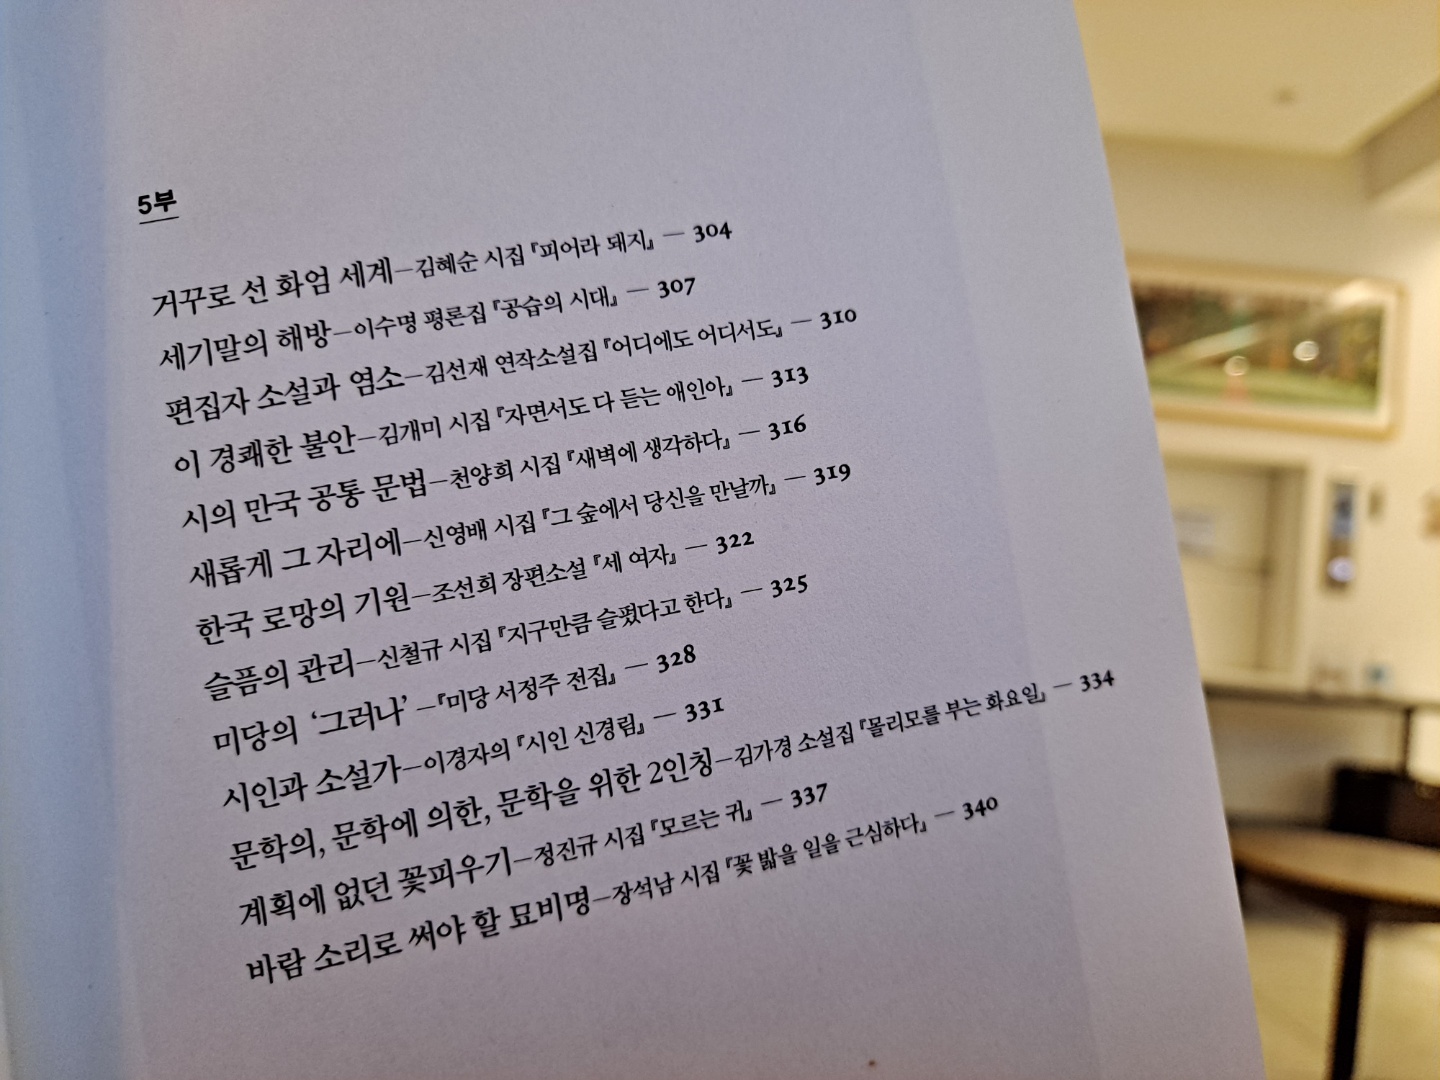 5부
거꾸로 선 화엄 세계–김혜순 시집 『피어라 돼지』 — 304
세기말의 해방–이수명 평론집 『공습의 시대』 — 307
편집자 소설과 염소–김선재 연작소설집 『어디에도 어디서도』 — 310
이 경쾌한 불안–김개미 시집 『자면서도 다 듣는 애인아』 — 313
시의 만국 공통 문법–천양희 시집 『새벽에 생각하다』 — 316
새롭게 그 자리에–신영배 시집 『그 숲에서 당신을 만날까』 — 319
한국 로망의 기원–조선희 장편소설 『세 여자』 — 322
슬픔의 관리–신철규 시집 『지구만큼 슬펐다고 한다』 — 325
미당의 ‘그러나’ –『미당 서정주 전집』 — 328
시인과 소설가–이경자의 『시인 신경림』 — 331
문학의, 문학에 의한, 문학을 위한 2인칭–김가경 소설집 『몰리모를 부는 화요일』 — 334
계획에 없던 꽃피우기–정진규 시집 『모르는 귀』 — 337
바람 소리로 써야 할 묘비명–장석남 시집 『꽃 밟을 일을 근심하다』 — 340